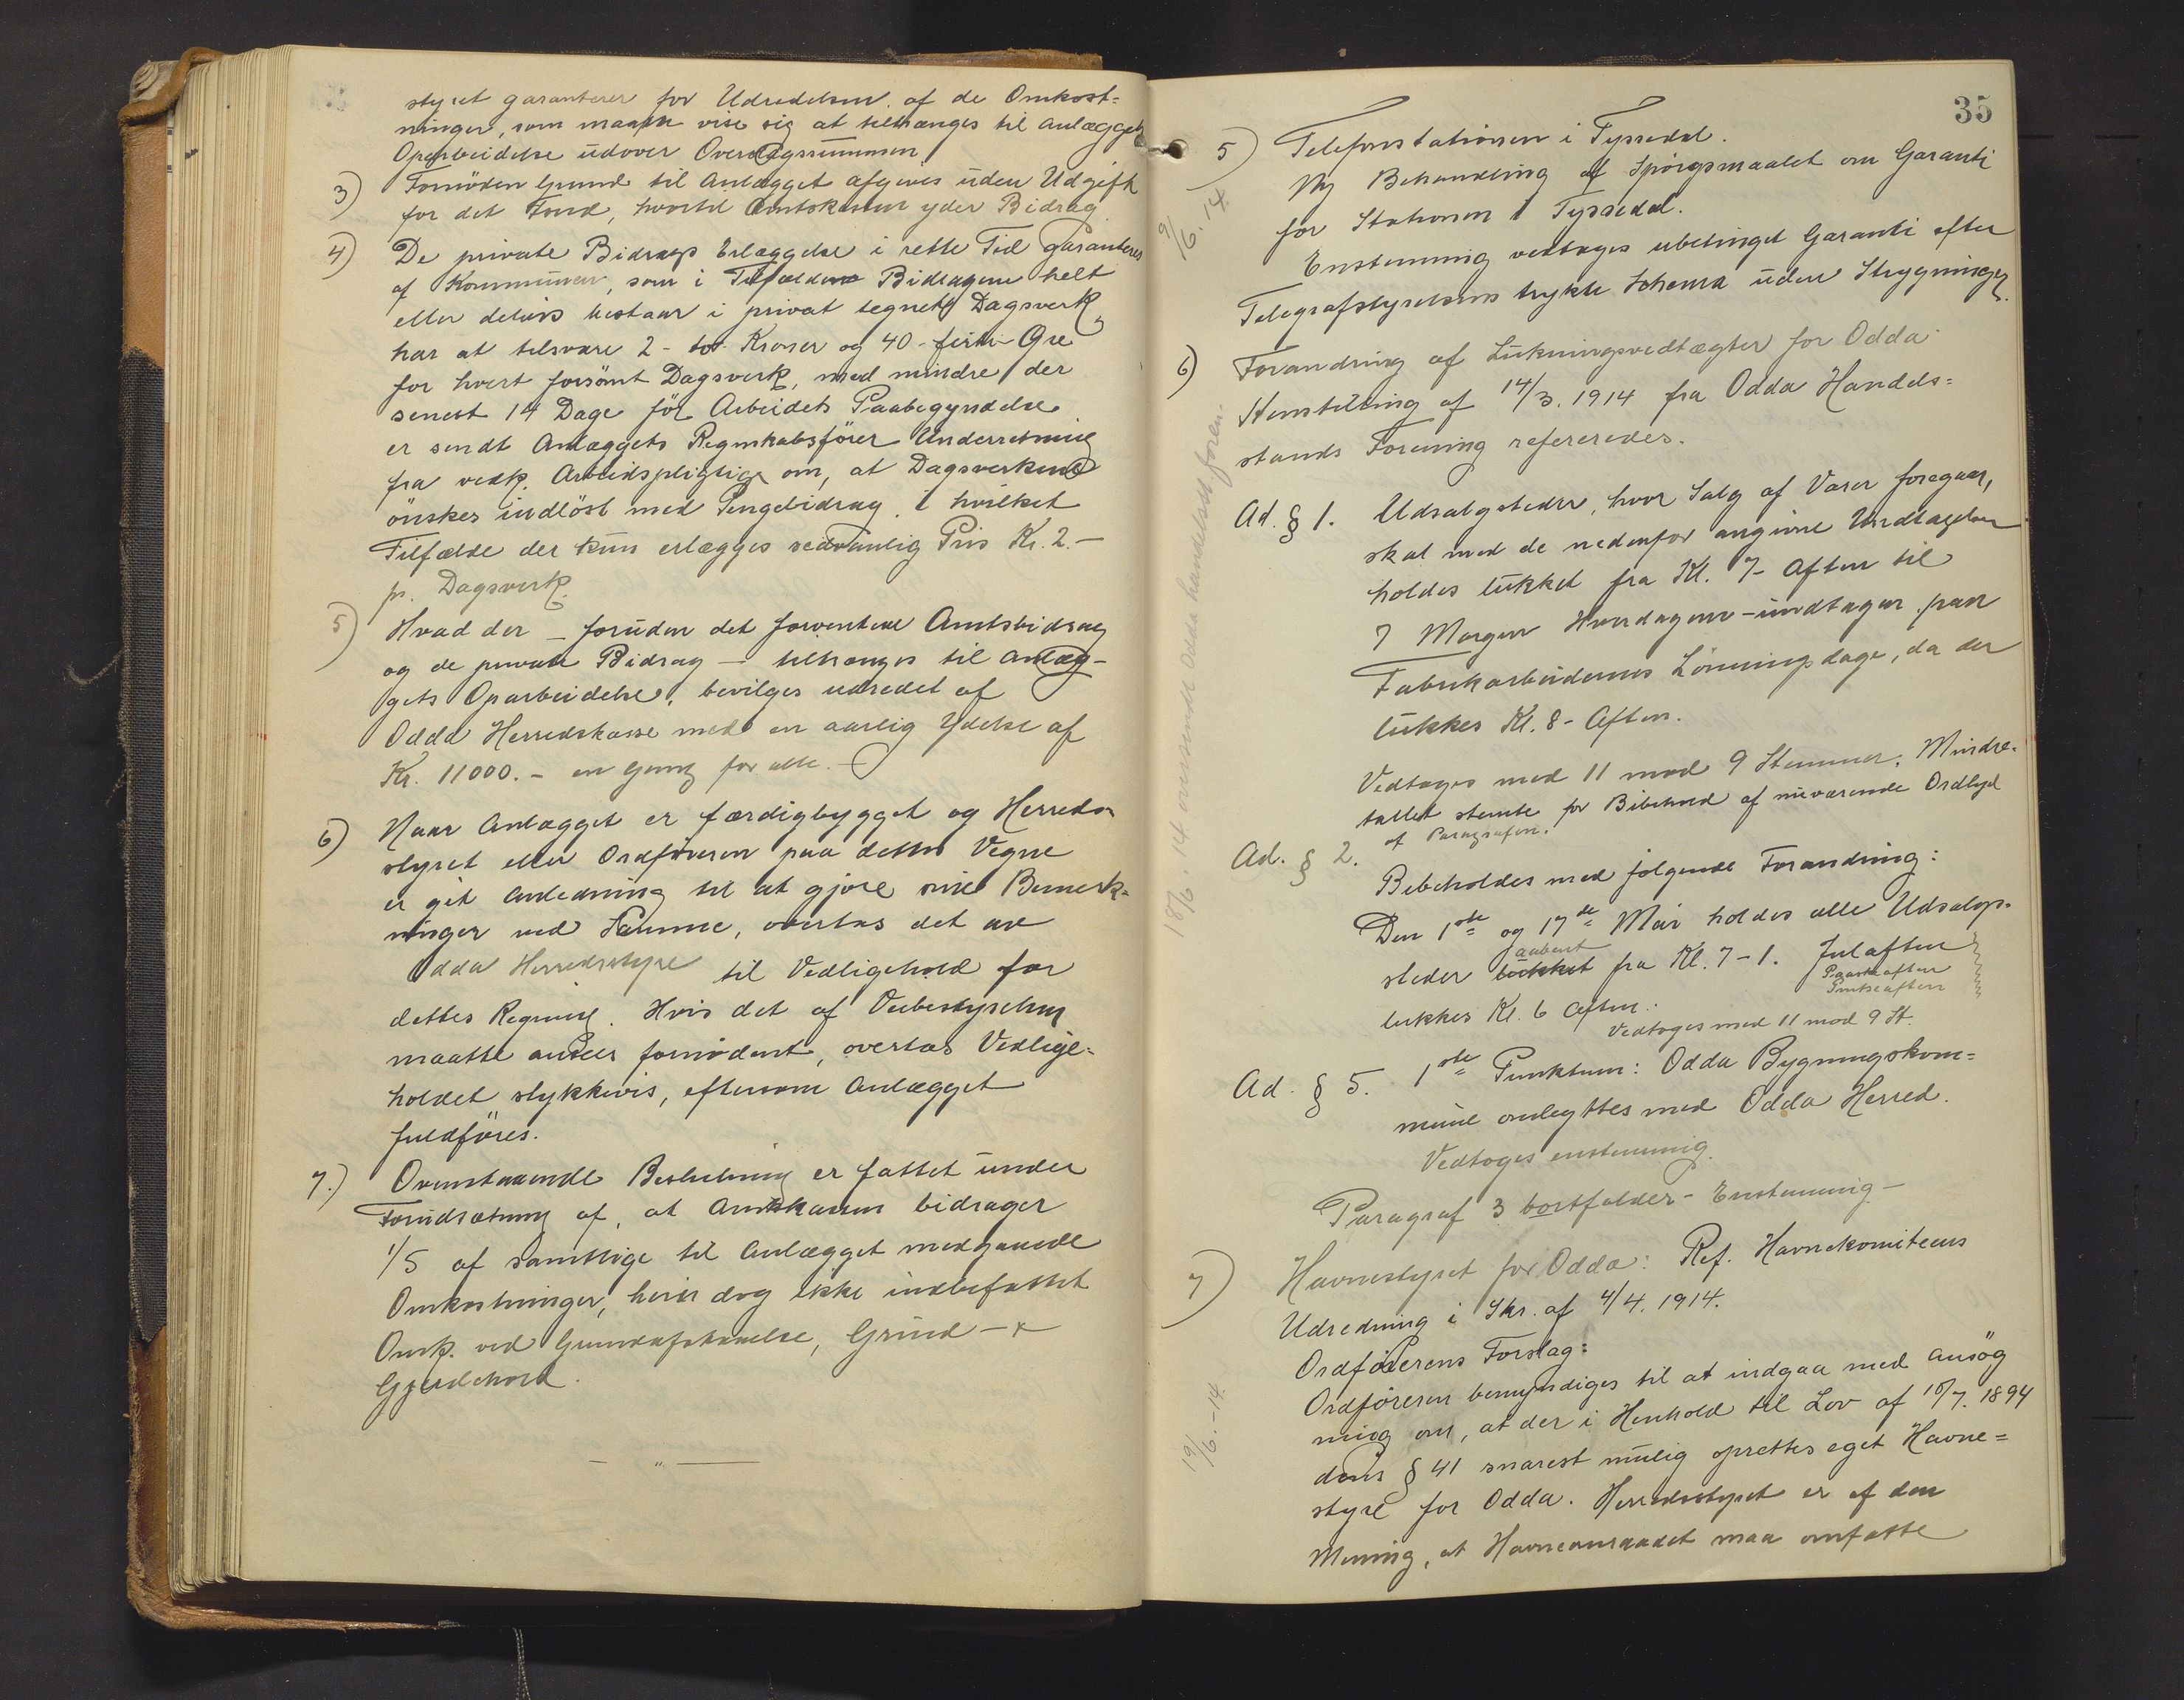 styret garanterer for Udredelsen af de Omkost=
ninger, som maatte vise sig at tiltrænges til Anlæggets
Oparbeidelse udover Overslagssummen.
3) Fornöden Grund til Anlægget afgives uden Udgift
for det Fond, hvortil Amtskassen yder Bidrag.
4) De private Bidrags Erlæggelse i rette Tid garanteres
af Kommunen, som i Tilfælde Bidragene helt
eller delvis bestaar i privat tegnet Dagsverk,
har at tilsvare 2 - to - Kroner og 40 - firti - Øre
for hvert forsömt Dagsverk, med mindre der
senest 14 Dage för Arbeidets Paabegyndelse
er sendt Anlæggets Regnskabsfører Underretning
fra vedk. Arbeidspligtige om, at Dagsverkene
önskes indlöst med Pengebidrag i hvilket
Tilfælde der kun erlægges sedvanlig Pris Kr. 2.-
pr. Dagsverk.
5) Hvad der - foruden det forventede Amtsbidrag
og de private Bidrag - tiltrænges til Anlæg-
gets Oparbeidelse, bevilges udredet af
Odda Herredskasse med en aarlig Ydelse af
Kr. 11000.- en Gang for alle.
6) Naar Anlægget er færdigbygget og Herreds-
styret eller Ordføreren paa dettes Vegne
er git Anledning til at gjøre sine Bemerk-
ninger ved Samme, overtas det av
Odda Herredsstyre til Vedligehold for
dettes Regning. Hvis det af Veibestyrelsen
maatte ansees fornödent, overtas Vedlige-
holdet stykkevis, eftersom Anlægget
fuldföres.
7.) Ovenstaaende Beslutning er fattet under
Forudsætning af, at Amtskassen bidrager
1/5 af samtlige til Anlægget medgaaede
Omkostninger, heri dog ikke indbefattet
Omk. ved Grundafstaaelse, Grind - &
Gjerdehold.
35
5) Telefonstationen i Tyssedal.
9/6. 14.
Ny Behandling af Spörgsmaalet om Garanti
for Stationen i Tyssedal.
Enstemmig vedtages ubetinget Garanti efter
Telegrafstyrelsens trykte Schema uden Strygninger.
6) Forandring af Lukningsvedtægter for Odda
Henstilling af 14/3. 1914 fra Odda Handels=
stands Forening refereredes.
18/6. 14 oversendt Odda handelsst.foren.
Ad. § 1. Udsalgsteder, hvor Salg af Varer foregaar,
skal med de nedenfor angivne Undtagelser
holdes lukket fra Kl. 7 - Aften til
7 Morgen Hverdagene - undtagen paa
Fabrikarbeidernes Lönningsdage, da der
lukkes Kl. 8 - Aften.
Vedtages med 11 mod 9 Stemmer. Mindre-
tallet stemte for Bibehold af nuværende Ordlyd
af Paragrafen.
Ad. § 2.
Bibeholdes med følgende Forandring:
Den 1ste og 17de Mai holdes alle Udsalgs-
steder lukket aabent fra Kl. 7-1. Julaften
Paaskeaften
Pintseaften
lukkes Kl. 6 Aften.
Vedtoges med 11 mod 9 St.
Ad. § 5. 1ste Punktum: Odda Bygningskom=
mune ombyttes med Odda Herred.
Vedtoges enstemmig.
Paragraf 3 bortfalder - Enstemmig -
7) Havnestyret for Odda: Ref. Havnekomiteens
Udredning i Skr. af 4/4. 1914.
Ordförerens Forslag:
Ordføreren bemyndiges til at indgaa med Ansög
ning om, at der i Henhold til Lov af 10/7. 1894
dens § 41 snarest mulig oprettes eget Havne=
19/6. - 14.
styre for Odda. Herredsstyret er af den
Mening, at Havneomraadet maa omfatte